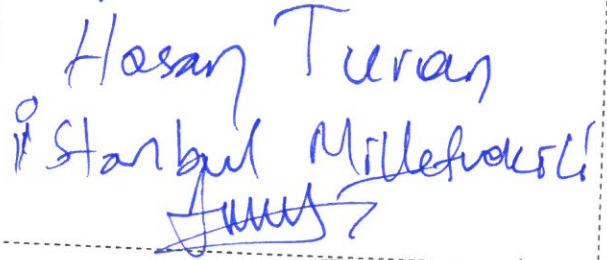 Hasan Turan
İstanbul Milletvekili